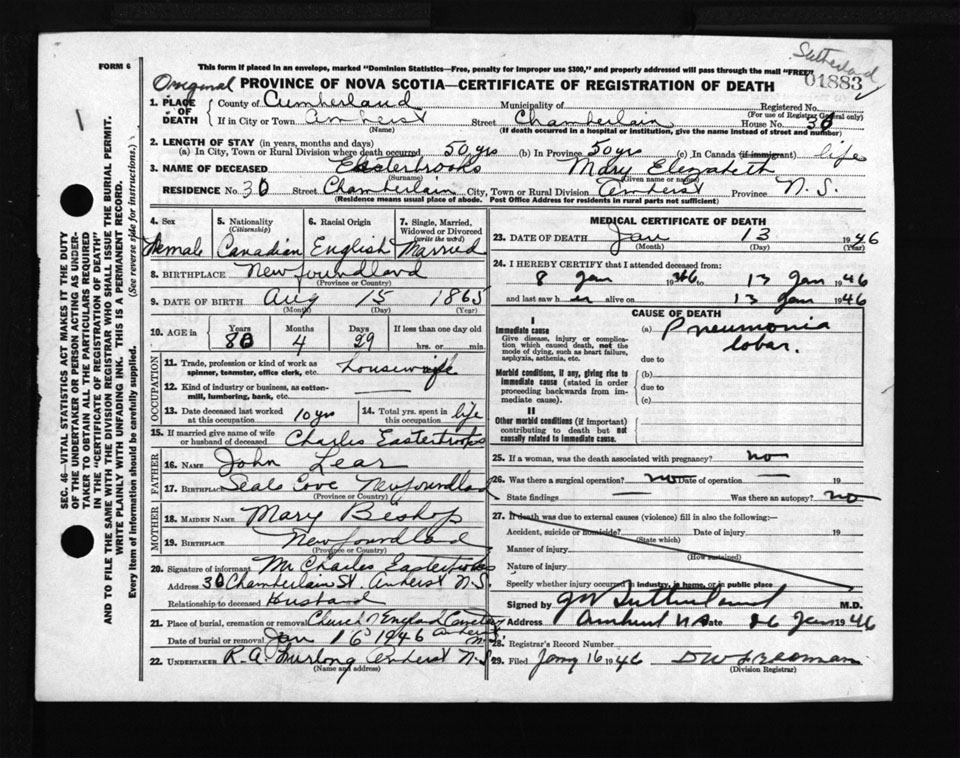 Sutherland
FORM 6
This form if placed in an envelope, marked "Dominion Statistics—Free, penalty for improper use $300," and properly addressed will pass through the mail "FREE"
01883
Original PROVINCE OF NOVA SCOTIA—CERTIFICATE OF REGISTRATION OF DEATH
1. PLACE OF DEATH { County of Cumberland Municipality of Registered No.
(For use of Registrar General only)
If in City or Town Amherst Street Chamberlain House No. 30
(Name) (If death occurred in a hospital or institution, give the name instead of street and number)
2. LENGTH OF STAY (in years, months and days)
(a) In City, Town or Rural Division where death occurred 50 yrs (b) In Province 50 yrs (c) In Canada (if immigrant) life
3. NAME OF DECEASED Easterbrooks Mary Elizabeth
(Surname) (Given name or names)
RESIDENCE No. 30 Street Chamberlain City, Town or Rural Division Amherst Province N.S.
(Residence means usual place of abode. Post Office Address for residents in rural parts not sufficient)
4. Sex 5. Nationality (Citizenship) 6. Racial Origin 7. Single, Married, Widowed or Divorced (write the word)
Female Canadian English Married
8. BIRTHPLACE Newfoundland
(Province or Country)
9. DATE OF BIRTH Aug 15 1865
(Month) (Day) (Year)
10. AGE in { Years Months Days If less than one day old
80 4 29 hrs. or min.
OCCUPATION
11. Trade, profession or kind of work as spinner, teamster, office clerk, etc. housewife
12. Kind of industry or business, as cotton-mill, lumbering, bank, etc. —
13. Date deceased last worked at this occupation 10 yrs 14. Total yrs. spent in this occupation life
15. If married give name of wife or husband of deceased Charles Easterbrooks
FATHER
16. NAME John Lear
17. BIRTHPLACE Seals Cove Newfoundland
(Province or Country)
MOTHER
18. MAIDEN NAME Mary Bishop
19. BIRTHPLACE Newfoundland
(Province or Country)
20. Signature of informant Mr Charles Easterbrooks
Address 30 Chamberlain St. Amherst N.S.
Relationship to deceased Husband
21. Place of burial, cremation or removal Church of England Cemetery
Date of burial or removal Jan 16 1946 Amherst N.S.
22. UNDERTAKER R.A. Furlong Amherst N.S
(Name and address)
MEDICAL CERTIFICATE OF DEATH
23. DATE OF DEATH Jan 13 1946
(Month) (Day) (Year)
24. I HEREBY CERTIFY that I attended deceased from:
8 Jan 1946 to 13 Jan 1946
and last saw h er alive on 13 Jan 1946
CAUSE OF DEATH
I
Immediate cause (a) Pneumonia
Give disease, injury or complication which caused death, not the mode of dying, such as heart failure, asphyxia, asthenia, etc. lobar.
due to
Morbid conditions, if any, giving rise to immediate cause (stated in order proceeding backwards from immediate cause). (b)
due to
(c)
II
Other morbid conditions (if important) contributing to death but not causally related to immediate cause.
25. If a woman, was the death associated with pregnancy? no
26. Was there a surgical operation? no Date of operation 19
State findings — Was there an autopsy? no
27. If death was due to external causes (violence) fill in also the following:—
Accident, suicide or homicide? Date of injury 19
(State which)
Manner of injury
(How sustained)
Nature of injury
Specify whether injury occurred in industry, in home, or in public place
Signed by JW Sutherland M.D.
Address Amherst NS Date 26 Jan 1946
28. Registrar's Record Number
29. Filed Jany 16 1946
(Division Registrar)
SEC. 46—VITAL STATISTICS ACT MAKES IT THE DUTY
OF THE UNDERTAKER OR PERSON ACTING AS UNDER-
TAKER TO OBTAIN ALL THE PARTICULARS REQUIRED
IN THE "CERTIFICATE OF REGISTRATION OF DEATH"
AND TO FILE THE SAME WITH THE DIVISION REGISTRAR WHO SHALL ISSUE THE BURIAL PERMIT.
WRITE PLAINLY WITH UNFADING INK. THIS IS A PERMANENT RECORD.
Every item of information should be carefully supplied. (See reverse side for instructions.)